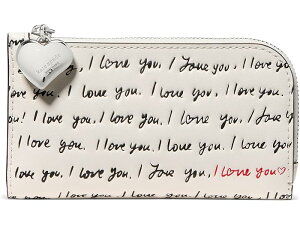 I love you, I love you, I love you
you, I love you, I love you, I love you,
I love you, I love you, I love you, I love
you! I love you, I love you, I love you, I
I love you, I love you, I love you, I love
I love you, I love you, I love you♡